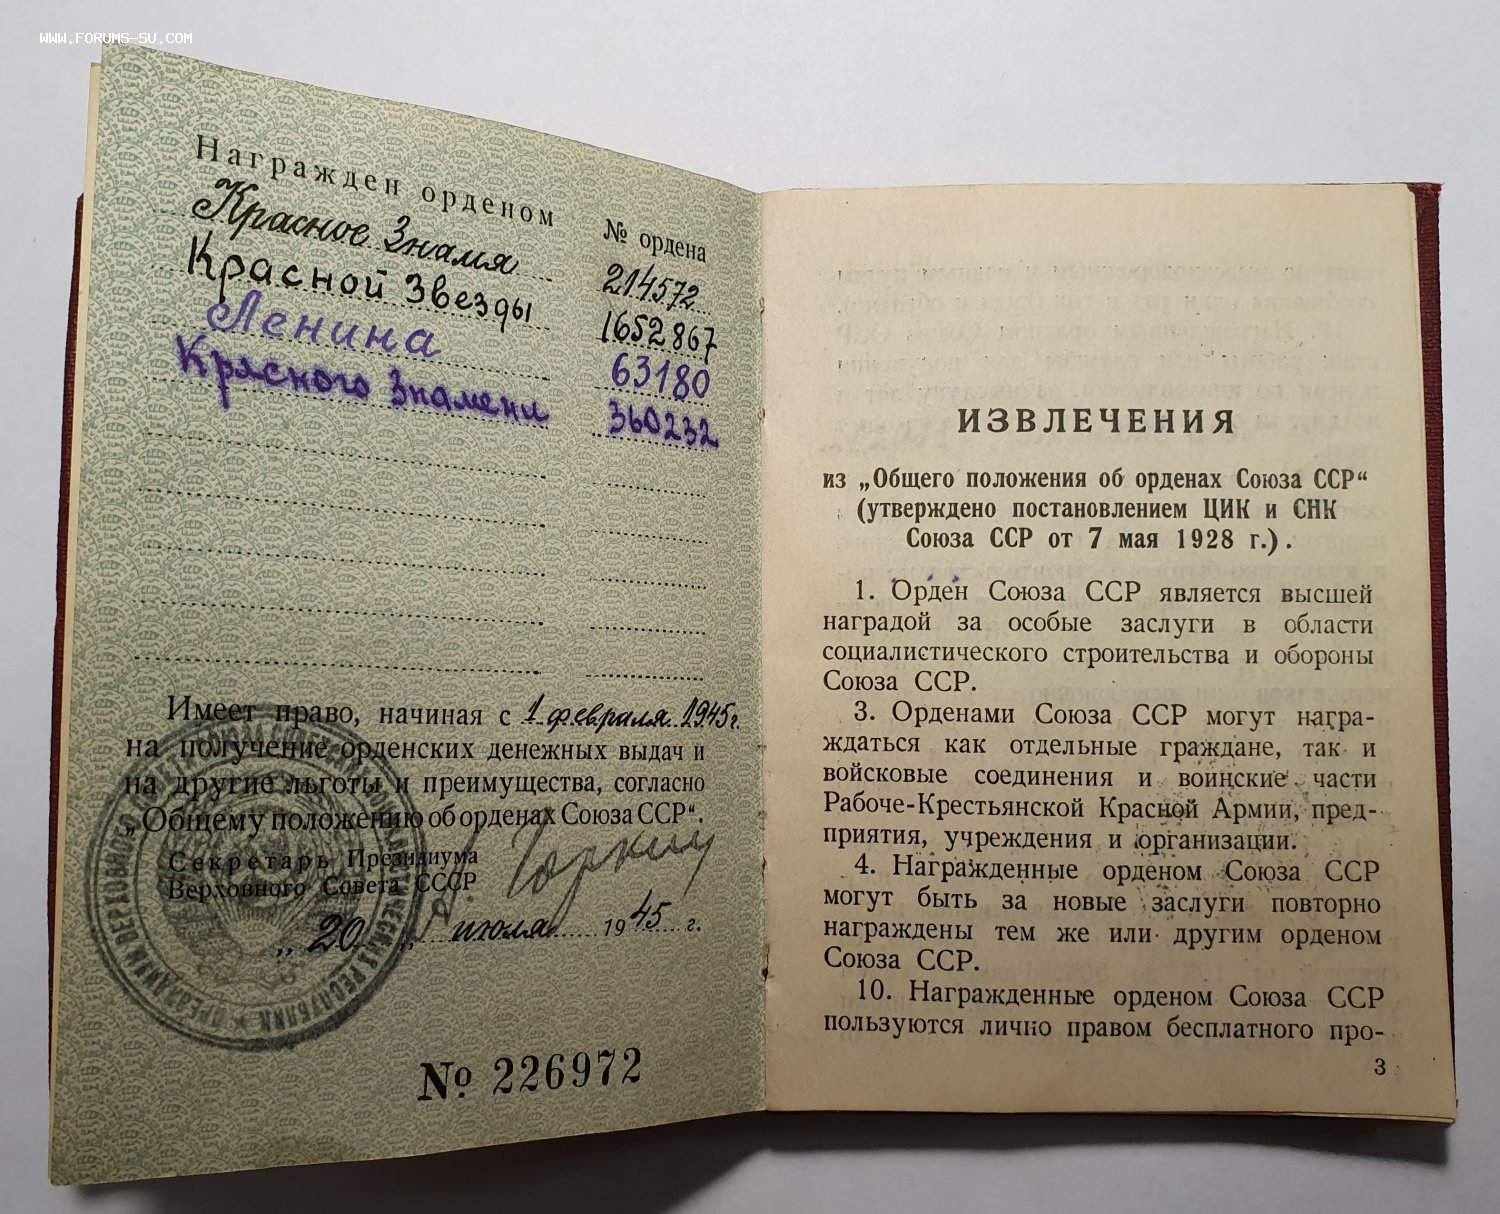 WWW.FORUMS-SU.COM
Награжден орденом № ордена
Красное Знамя 214572
Красной Звезды 1652867
Ленина 63180
Красного Знамени 360232
Имеет право, начиная с 1 февраля 1945 г.
на получение орденских денежных выдач и
на другие льготы и преимущества, согласно
„Общему положению об орденах Союза ССР“.
Секретарь Президиума
Верховного Совета СССР
„20„ июля 1945 г.
№ 226972
ИЗВЛЕЧЕНИЯ
из „Общего положения об орденах Союза ССР“
(утверждено постановлением ЦИК и СНК
Союза ССР от 7 мая 1928 г.).
1. Орден Союза ССР является высшей
наградой за особые заслуги в области
социалистического строительства и обороны
Союза ССР.
3. Орденами Союза ССР могут награ-
ждаться как отдельные граждане, так и
войсковые соединения и воинские части
Рабоче-Крестьянской Красной Армии, пред-
приятия, учреждения и организации.
4. Награжденные орденом Союза ССР
могут быть за новые заслуги повторно
награждены тем же или другим орденом
Союза ССР.
10. Награжденные орденом Союза ССР
пользуются лично правом бесплатного про-
3